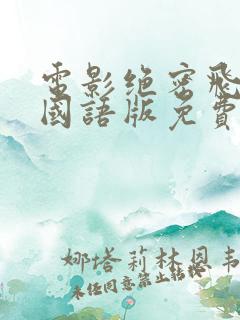 電影绝密飛
國語版免費
娜塔莉林恩韦
未经同意禁止转载